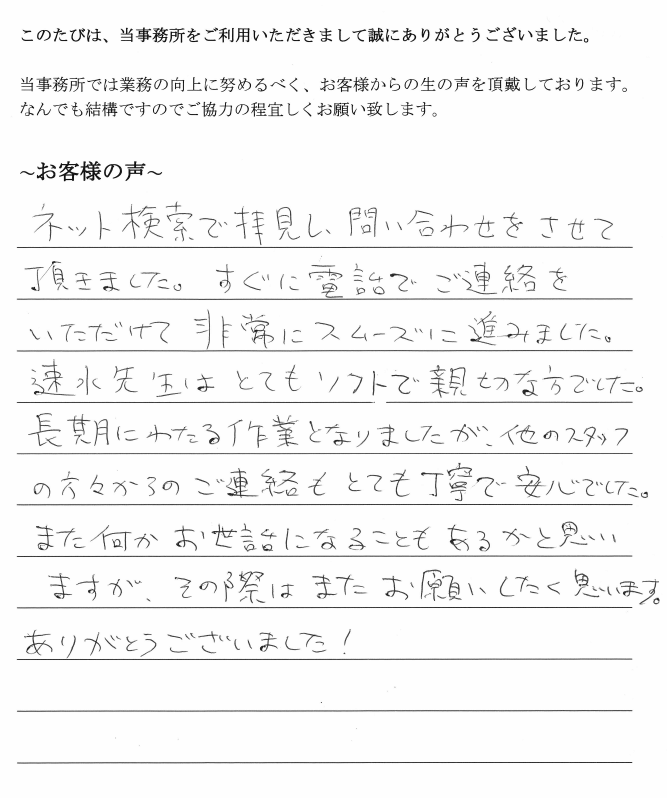 このたびは、当事務所をご利用いただきまして誠にありがとうございました。
当事務所では業務の向上に努めるべく、お客様からの生の声を頂戴しております。
なんでも結構ですのでご協力の程宜しくお願い致します。
~お客様の声~
ネット検索で拝見し、問い合わせをさせて
頂きました。すぐに電話でご連絡を
いただけて非常にスムーズに進みました。
速水先生はとてもソフトで親切な方でした。
長期にわたる作業となりましたが、他のスタッフ
の方々からのご連絡もとても丁寧で安心でした。
また何かお世話になることもあるかと思い
ますが、その際はまたお願いしたく思います。
ありがとうございました!